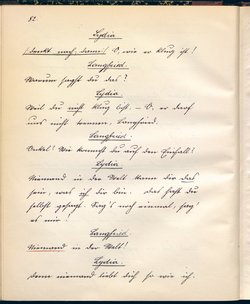 82.
Lydia
(denkt nach, dann) O, wie er klug ist!
Langfried
Warum sagst du das?
Lydia
Weil du nicht klug bist. – O, er darf
uns nicht trennen, Langfried.
Langfried.
Enkel? Wie kommst du auf den Einfall?
Lydia
Niemand in der Welt kann dir das
sein, was ich dir bin. Das hast du
gesagt. Sag's noch einmal, sag'
es mir!
Langfried
Niemand in der Welt!
Lydia.
Denn niemand liebt dich so wie ich.